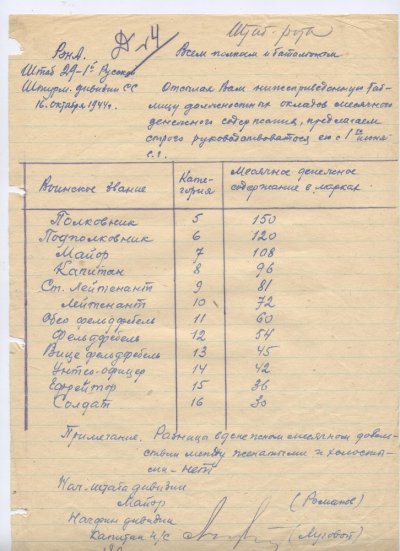 Штаб-рота
РОНА. Д 14
Всем полкам и батальонам
Штаб 29-й Русской
Штурм. дивизии СС
16. октября 1944г.
Отсылая Вам нижеприведенную таб-
лицу должностных окладов месячного
денежного содержания, предлагаем
строго руководствоваться ею с 1го июня
с.г.
Воинское звание Кате-гория Месячное денежное содержание в марках
Полковник 5 150
Подполковник 6 120
Майор 7 108
Капитан 8 96
Ст. Лейтенант 9 81
Лейтенант 10 72
Обер фельдфебель 11 60
Фельдфебель 12 54
Вице фельдфебель 13 45
Унтер-офицер 14 42
Ефрейтор 15 36
Солдат 16 30
Примечание. Разница в денежном месячном доволь-
ствии между женатыми и холосты-
ми - нет
Нач. штаба дивизии
Майор (Романов)
Начфин дивизии
Капитан И/С (Луговой)